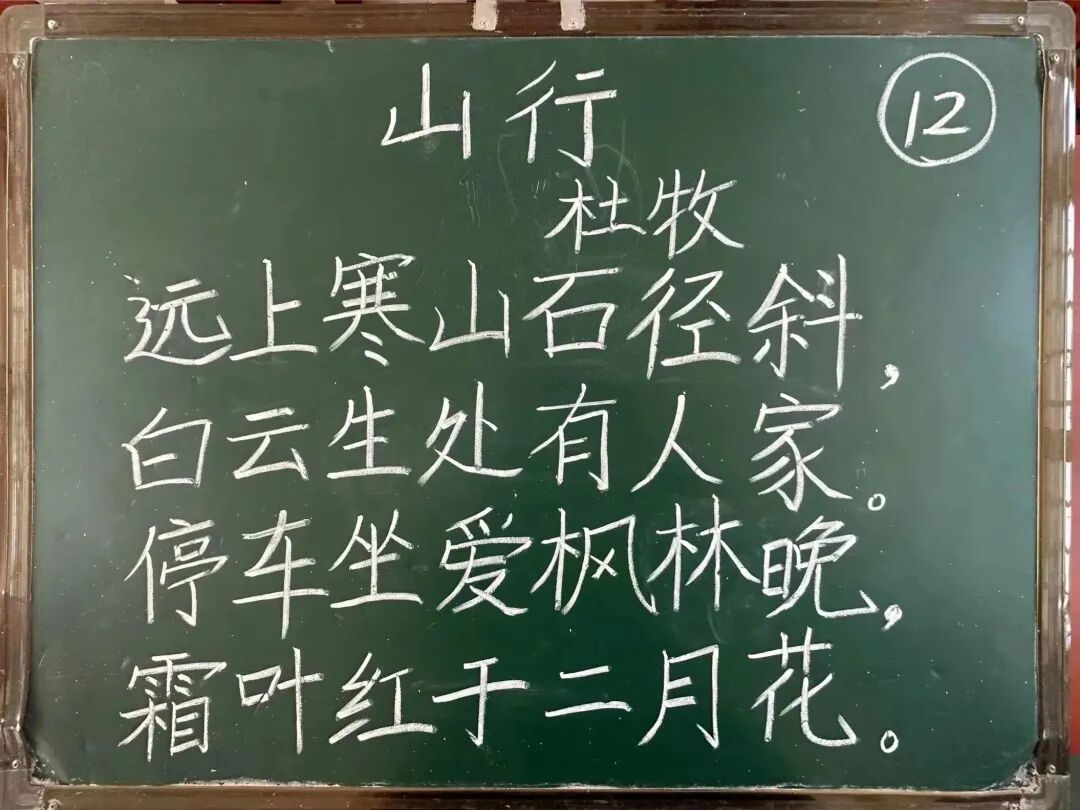 山行
12
杜牧
远上寒山石径斜，
白云生处有人家。
停车坐爱枫林晚，
霜叶红于二月花。